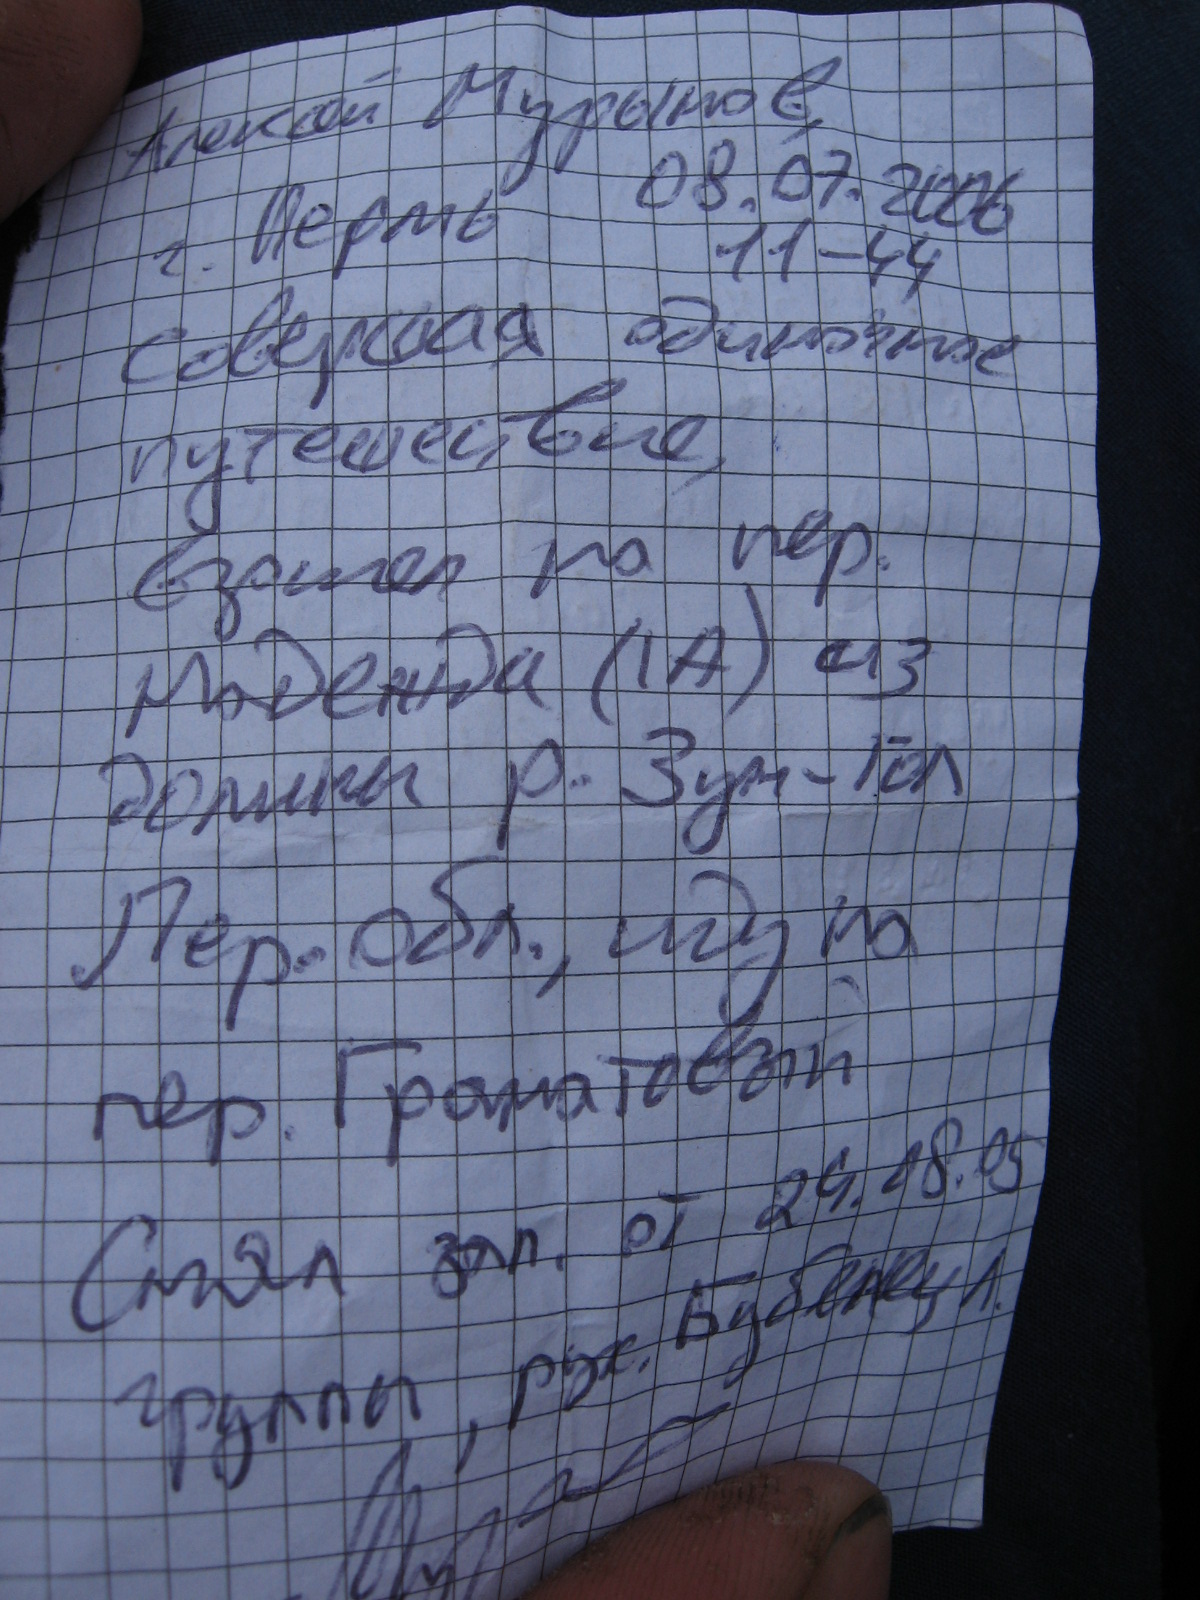 Алексей Мурынов,
г. Пермь 08.07.2006
11-44
Совершая одиночное
путешествие,
взошел на пер.
Надежда (1А) из
долины р. Зун-Гол
Пер. обл., иду на
пер. Гранатовый
Снял зап. от 24.08.05
группы, рук. Бубенец Л.